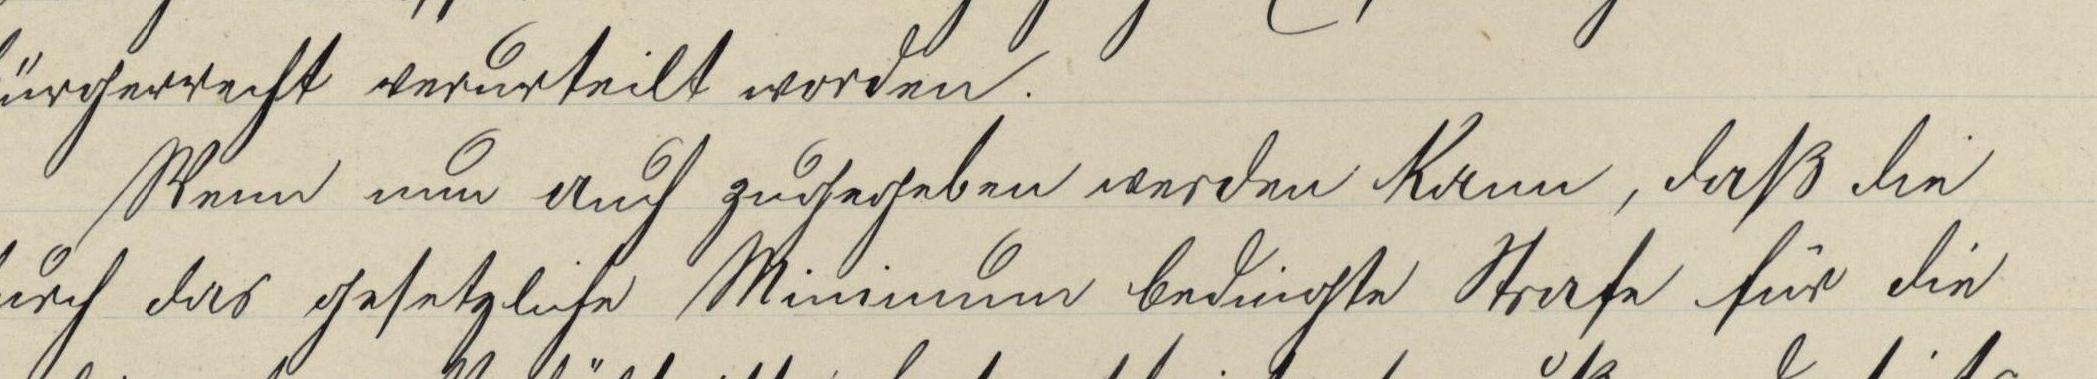 ürgerrecht verurteilt worden.
Wenn nun auch zugegeben werden kann, daß die
urch das gesetzliche Minimum bedingte Strafe für die